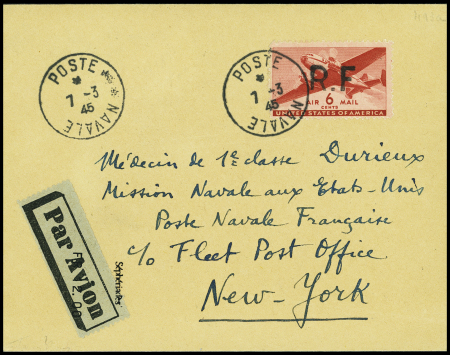 POSTE NAVALE
7-3
45
POSTE NAVALE
7-3
45
R.F
AIR 6 MAIL
CENTS
UNITED STATES OF AMERICA
Médecin de 1e classe Durieux
Mission Navale aux Etats-Unis
Poste Navale Française
c/o Fleet Post Office
New-York
Par Avion